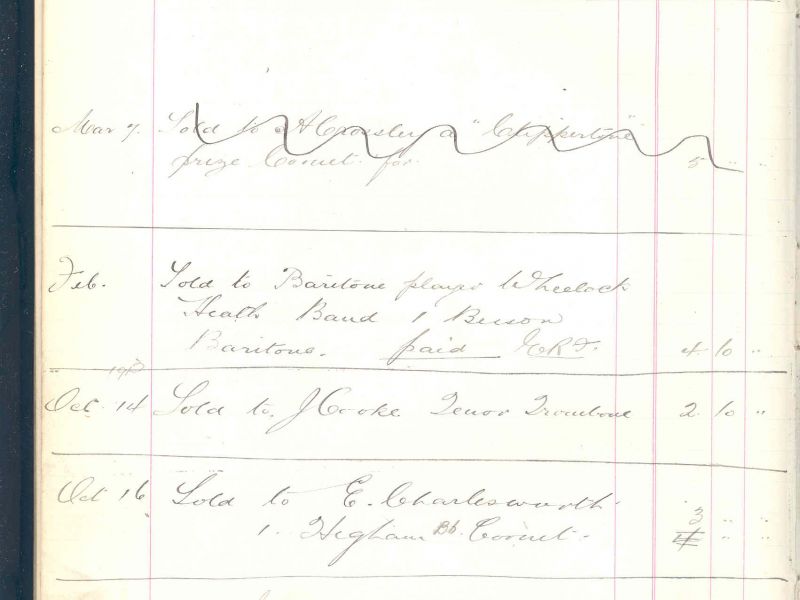 Mar 7. Sold to A Crossley a "Clippertone"
prize Cornet for 5 " "
Feb. Sold to Baritone player Wheelock
Heath Band 1 Besson
Baritone. paid 4 10 "
Oct 14 Sold to J Cooke Tenor Trombone 2 10 "
Oct 16 Sold to E. Charlesworth
1 Higham Bb Cornet - 3 " "